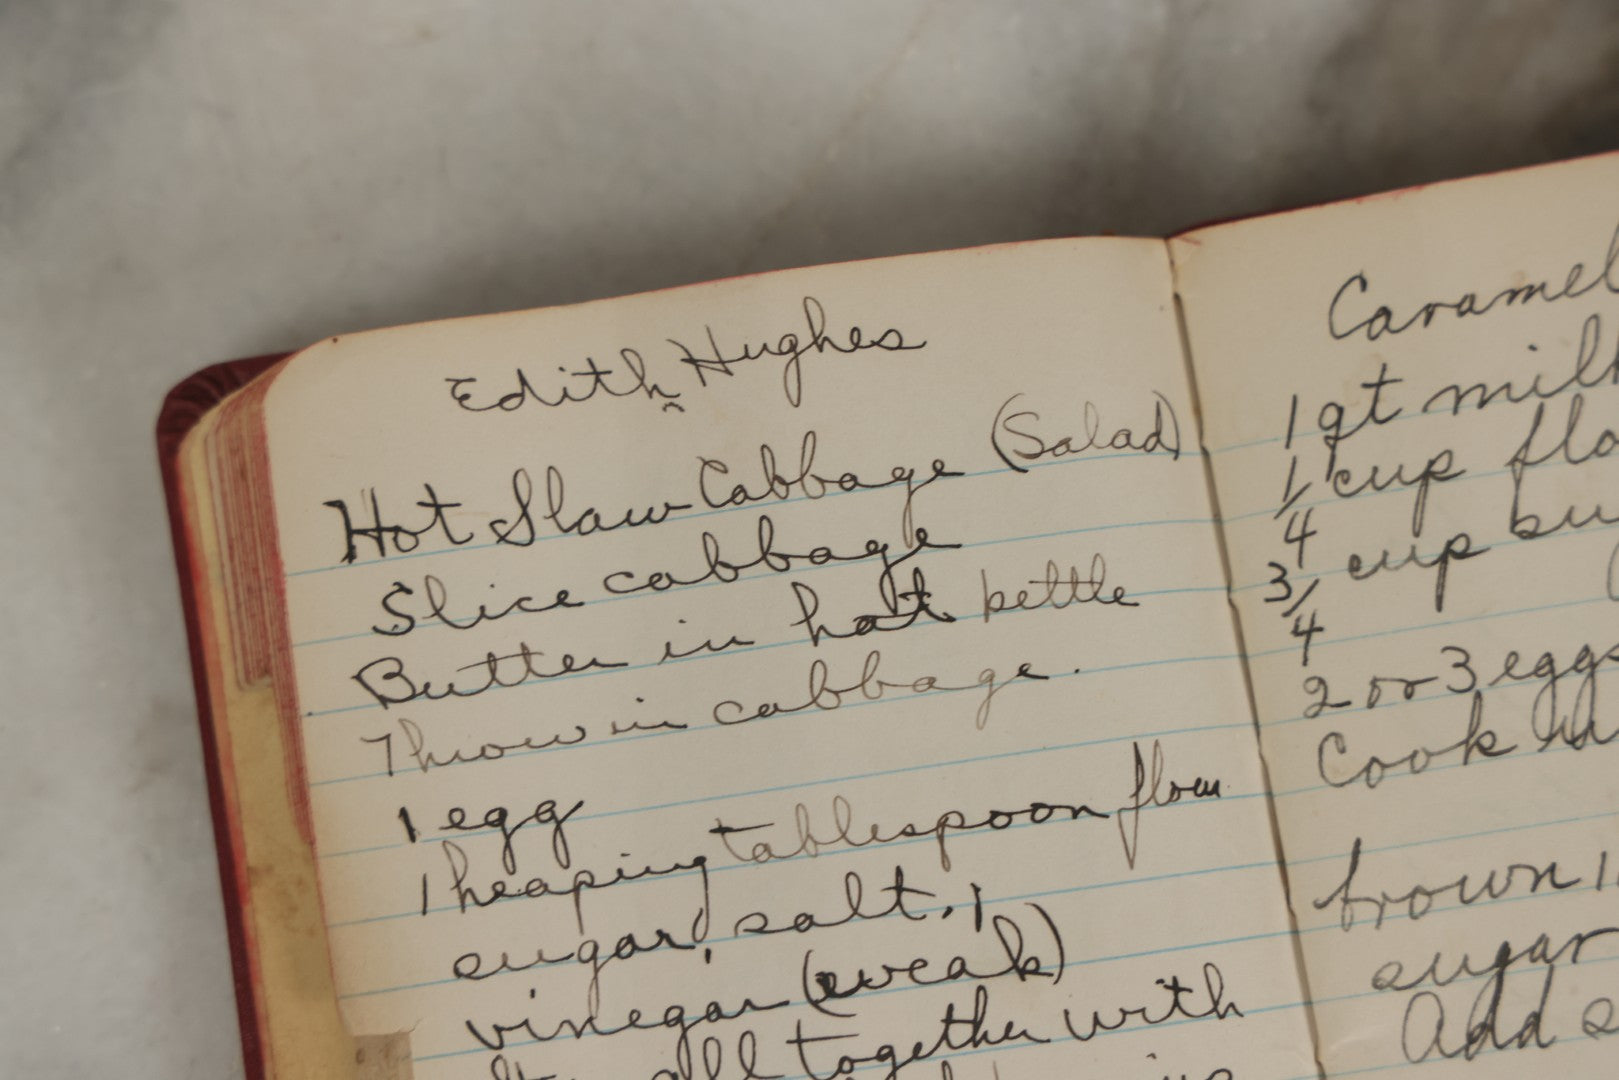 Edith Hughes
Hot Slaw Cabbage (Salad)
Slice cabbage
Butter in hot kettle
Throw in cabbage.
1 egg
1 heaping tablespoon flour
sugar, salt.,
vinegar (weak)
all together with
Caramel
1 qt milk
1/4 cup
3/4 cup
2 or 3 eggs
Cook
brown
sugar
Add